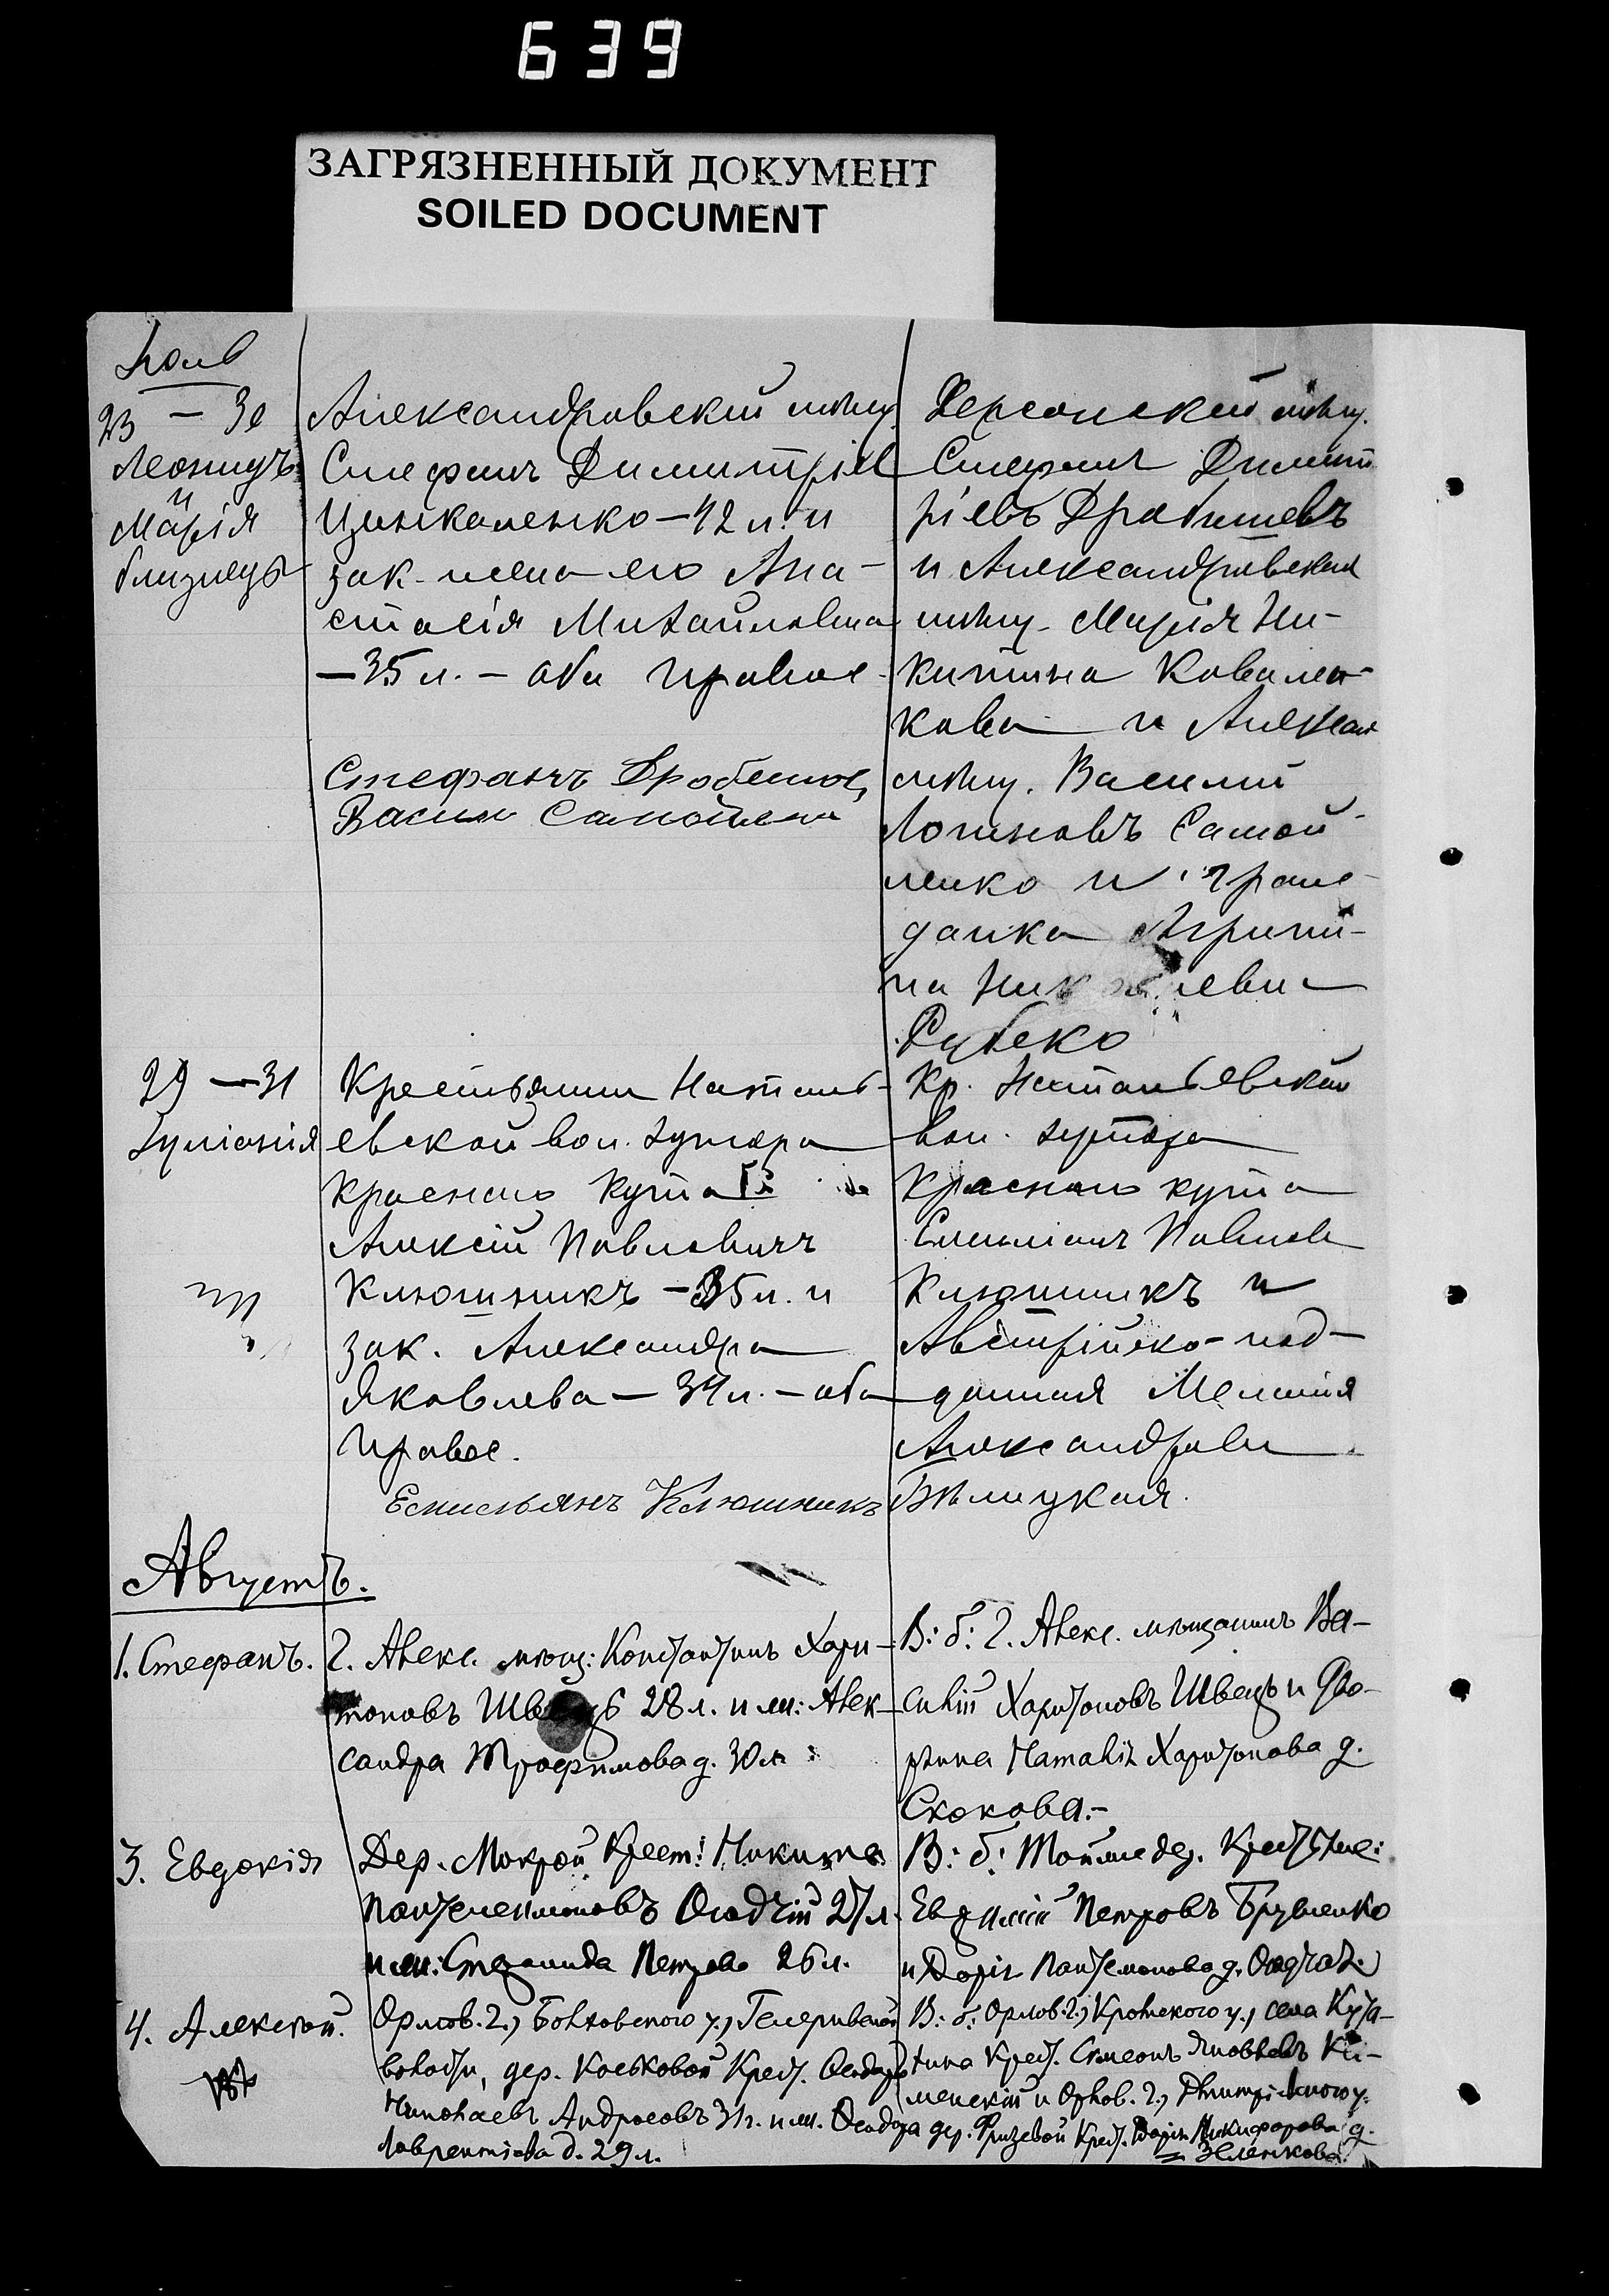 639
ЗАГРЯЗНЕННЫЙ ДОКУМЕНТ
SOILED DOCUMENT
Іюль
23 — 30
Леонидъ
и
Марія
близнецы
Александровскій мѣщ.
Стефанъ Димитріев
Цинкаленко — 42 л. и
зак. жена его Ана-
стасія Михайловна
— 35 л. — оба правос.
Стефанъ Дробышев,
Васили Самойленко
Херсонскій мѣщ.
Стефанъ Димит
ріевъ Дробышевъ
и Александровская
мѣщ. Марія Ни-
китина Ковален-
кова и Александ
мѣщ. Василій
Логиновъ Самой-
ленко и граж-
данка Агрипи-
на Николаевна
29 — 31
Іуліанія
Крестьянин Наталь-
евской вол. хутора
Краснаго Кута
Алексій Павловичъ
Ключникъ — 35 л. и
зак. Александра
Яковлева — 34 л. — оба
правос.
Емильянъ Ключникъ
Кр. Натальевской
вол. хутора
Краснаго кута
Емиліанъ Павлов
Ключникъ и
Австрійско-под-
данная Меланія
Александрова
Бѣлицкая.
Августъ.
1. Стефанъ.
Г. Алекс. мѣщ: Константинъ Хари-
тоновъ Швецъ 28 л. и ж: Алек-
сандра Трофимова д. 30 л.
В: б: Г. Алекс. мѣщанинъ Ва-
силій Харитоновъ Швецъ и дво-
рянка Наталія Харитонова д.
Скокова.-
3. Евдокія
Дер. Мокрой Крест: Никита
Пантелеимоновъ Осадчій 27 л.
и ж: Степанида Петрова 26 л.
В: б: Той же дер. Крестьяне:
Евфимій Петровъ Бруленко
и Дарія Пантелимонова д. Осадчая.
4. Алексѣй.
Орлов. г., Болховского у.,
волости, дер. Коськовой Крест. Ѳеодоръ
Николаевъ Андросовъ 31 г. и ж. Ѳеодора
Лаврентіева д. 29 л.
В: б: Орлов. г., Кромского у., села Кута-
Крест. Симеонъ Яковлевъ Ки-
менскій и Орлов. г., Дмитріевского у.
дер. Крест. Дарія Никифорова д.
Зеленкова.